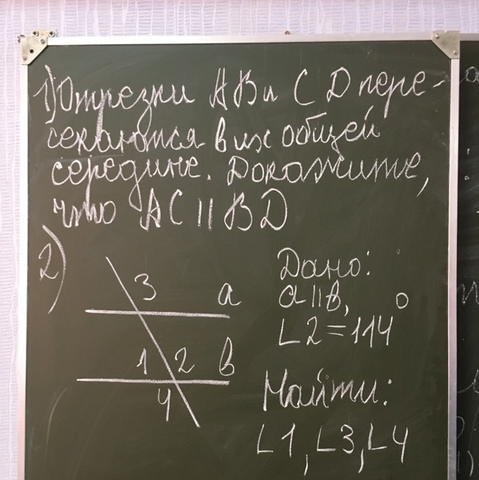 1) Отрезки AB и CD пере-
секаются в их общей
середине. Докажите,
что AC || BD
2)
3 a
1 2 b
4
Дано:
a || b,
∠2 = 114°
Найти:
∠1, ∠3, ∠4